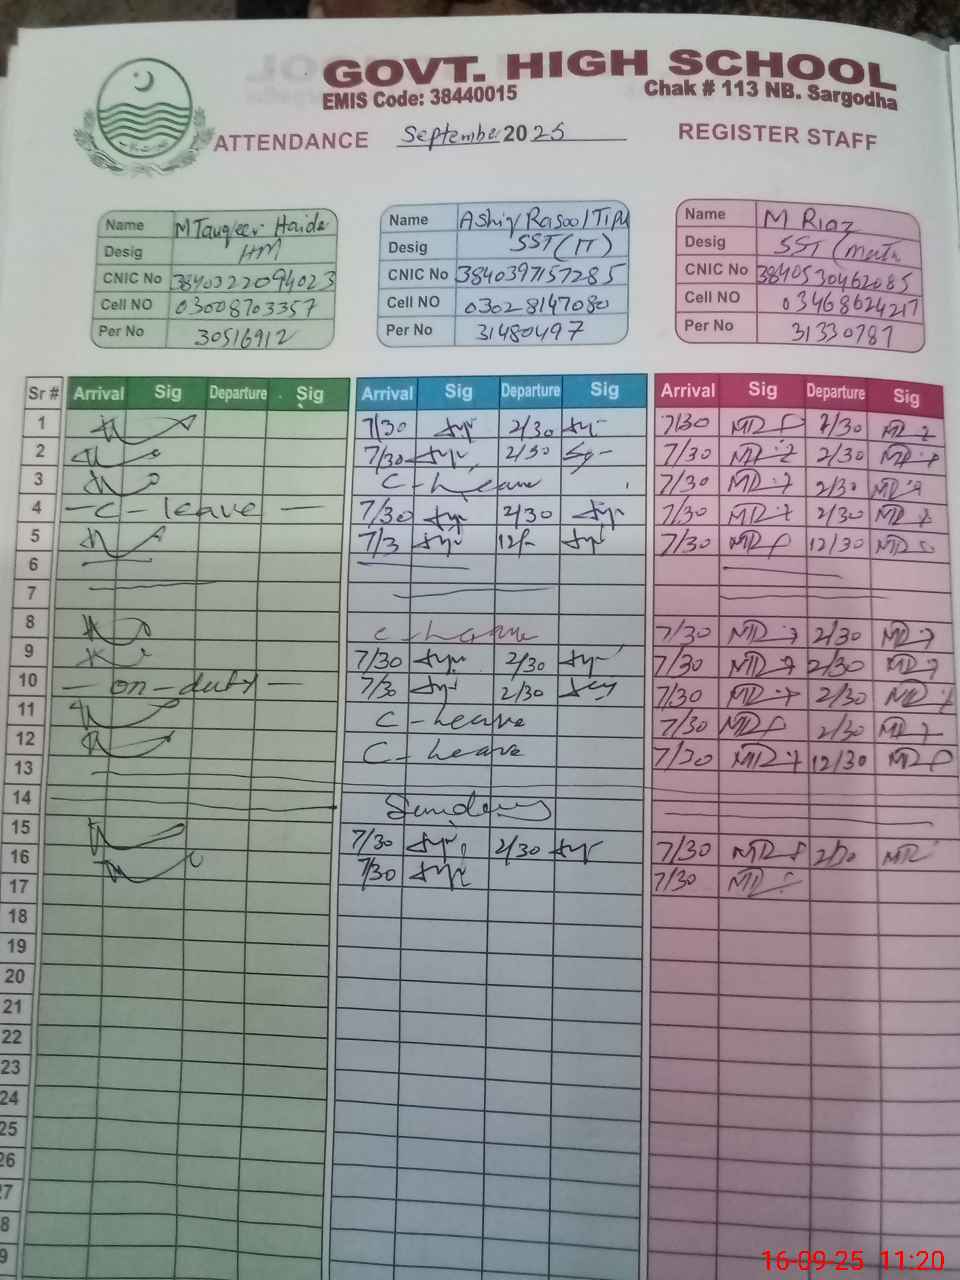 GOVT. HIGH SCHOOL
EMIS Code: 38440015 Chak # 113 NB. Sargodha
ATTENDANCE September 2025 REGISTER STAFF
Name M Tauqeer Haider
Desig HM
CNIC No 3840322094023
Cell NO 03008703357
Per No 30516912
Name Ashiq Rasool Tipu
Desig SST (IT)
CNIC No 3840397157285
Cell NO 03028147080
Per No 31480497
Name M Riaz
Desig SST (
CNIC No 3840530462085
Cell NO 03468624217
Per No 31330787
Sr # Arrival Sig Departure Sig Arrival Sig Departure Sig Arrival Sig Departure Sig
1 7/30 2/30 7/30 2/30
2 7/30 2/30 7/30 2/30
3 C-Leave 7/30 2/30
4 - C - leave - 7/30 2/30 7/30 2/30
5 7/3 12/ 7/30 12/30
6
7
8 C-Leave 7/30 2/30
9 7/30 2/30 7/30 2/30
10 - on-duty - 7/30 2/30 7/30 2/30
11 C-Leave 7/30 2/30
12 C-Leave 7/30 12/30
13
14 Sunday
15 7/30 2/30 7/30
16 7/30 7/30
17
18
19
20
21
22
23
24
25
26
27
8
9
16-09-25 11:20